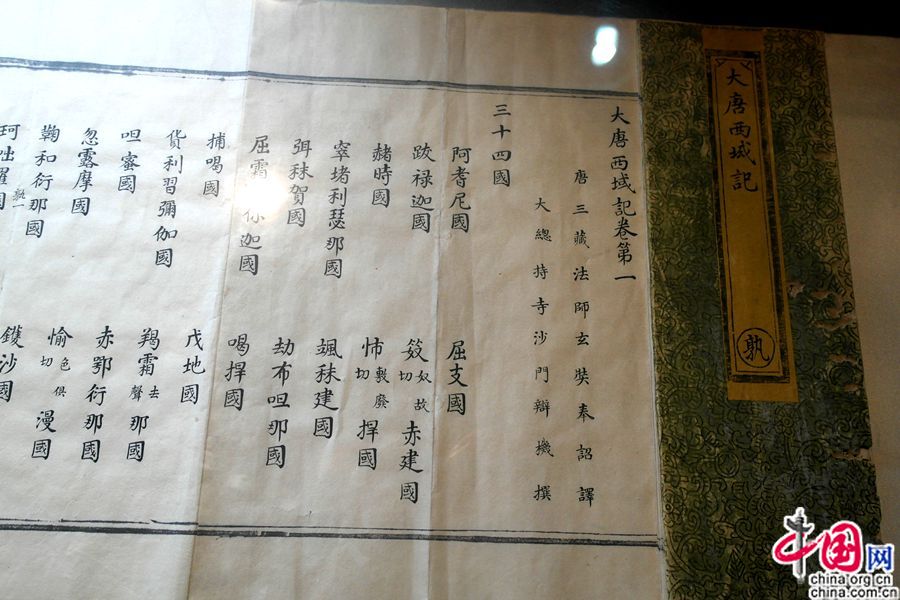 大唐西域記
孰
大唐西域記卷第一
唐三藏法師玄奘奉詔譯
大總持寺沙門辯機撰
三十四國
阿耆尼國 屈支國
跋祿迦國 笯奴故切赤建國
赭時國 㤄敷廢切捍國
窣堵利瑟那國 颯秣建國
弭秣賀國 劫布呾那國
屈霜你迦國 喝捍國
捕喝國
貨利習彌伽國 戊地國
呾蜜國 羯霜去聲那國
忽露摩國 赤鄂衍那國
鞠和衍那國 愉色俱切漫國
孰一
珂咄羅國 鑊沙國
中国网
china.org.cn
china.com.cn